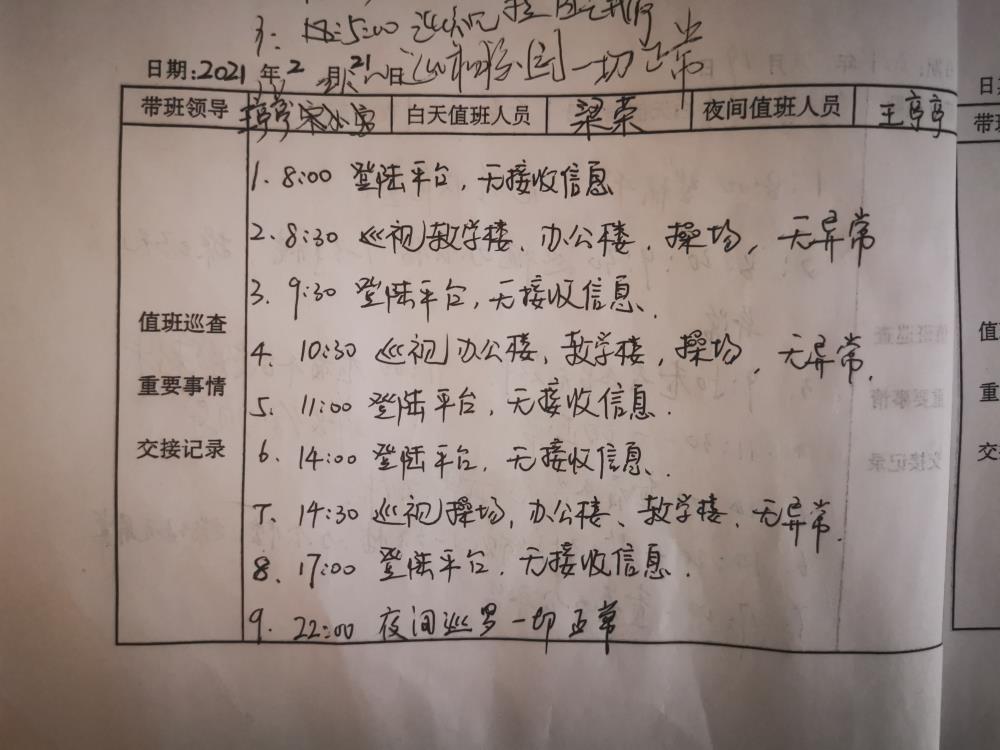 3: 18:5:00 巡视
日期:2021年2月21日 巡视校园一切正常
带班领导 王亭亭 宋 白天值班人员 梁荣 夜间值班人员 王亭亭
1. 8:00 登陆平台,无接收信息
2. 8:30 巡视教学楼、办公楼、操场,无异常
3. 9:30 登陆平台,无接收信息.
4. 10:30 巡视办公楼、教学楼、操场,无异常.
5. 11:00 登陆平台,无接收信息.
6. 14:00 登陆平台,无接收信息.
7. 14:30 巡视操场,办公楼、教学楼、无异常.
8. 17:00 登陆平台,无接收信息.
9. 22:00 夜间巡罗一切正常
值班巡查
重要事情
交接记录
日期
带班
值
重
交